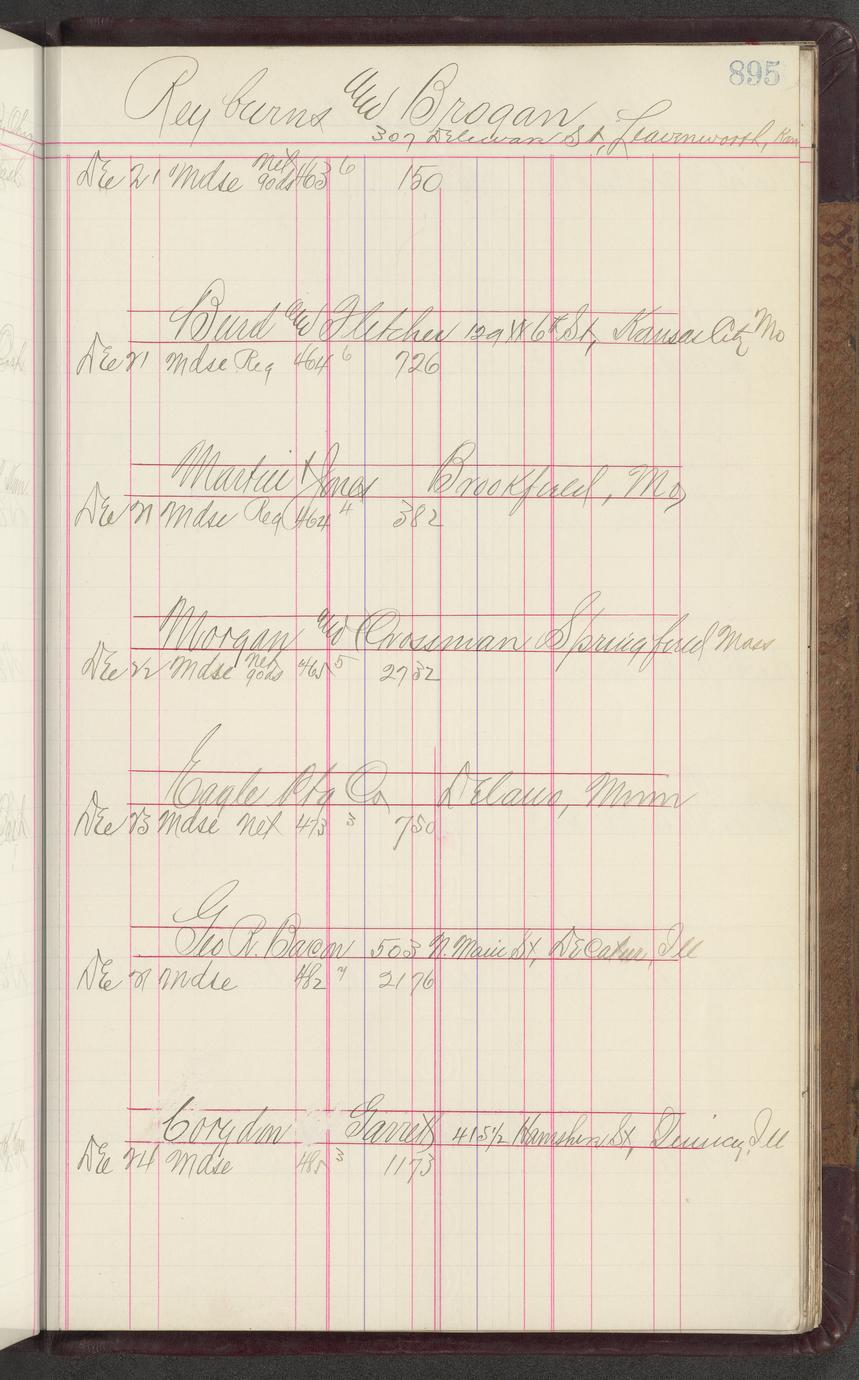 895
Reyburns and Brogan
307 Delewan St, Leavenworth, Kan
Dec 21 Mdse Net gods 463 6 150
Burd and Fletcher 129 W 6th St, Kansas City Mo
Dec 21 Mdse Reg 464 6 726
Martin & Jones Brookfield, Mo
Dec 21 Mdse Reg 464 4 382
Morgan and Crossman Springfield Mass
Dec 22 Mdse Net gods 465 5 2732
Eagle Ptg Co Delano, Minn
Dec 23 Mdse Net 473 3 750
Geo R. Bacon 503 N. Main St, Decatur, Ill
Dec Mdse 482 2176
Corydon Garrett 415 1/2 Hamshire St, Quincy, Ill
Dec 24 Mdse 485 3 1173